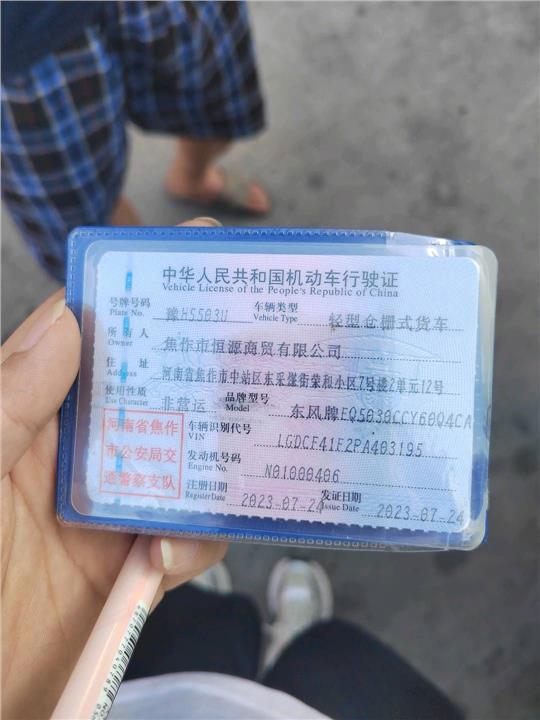 中华人民共和国机动车行驶证
Vehicle License of the People's Republic of China
号牌号码 Plate No. 豫H5503U 车辆类型 Vehicle Type 轻型仓栅式货车
所有人 Owner 焦作市恒源商贸有限公司
住址 Address 河南省焦作市中站区东采煤街荣和小区7号楼2单元12号
使用性质 Use Character 非营运 品牌型号 Model 东风牌EQ5030CCY60Q4CA
河南省焦作
市公安局交
通警察支队
车辆识别代号 VIN LGDCF41F2PA403195
发动机号码 Engine No. N01000406
注册日期 Register Date 2023-07-24 发证日期 Issue Date 2023-07-24